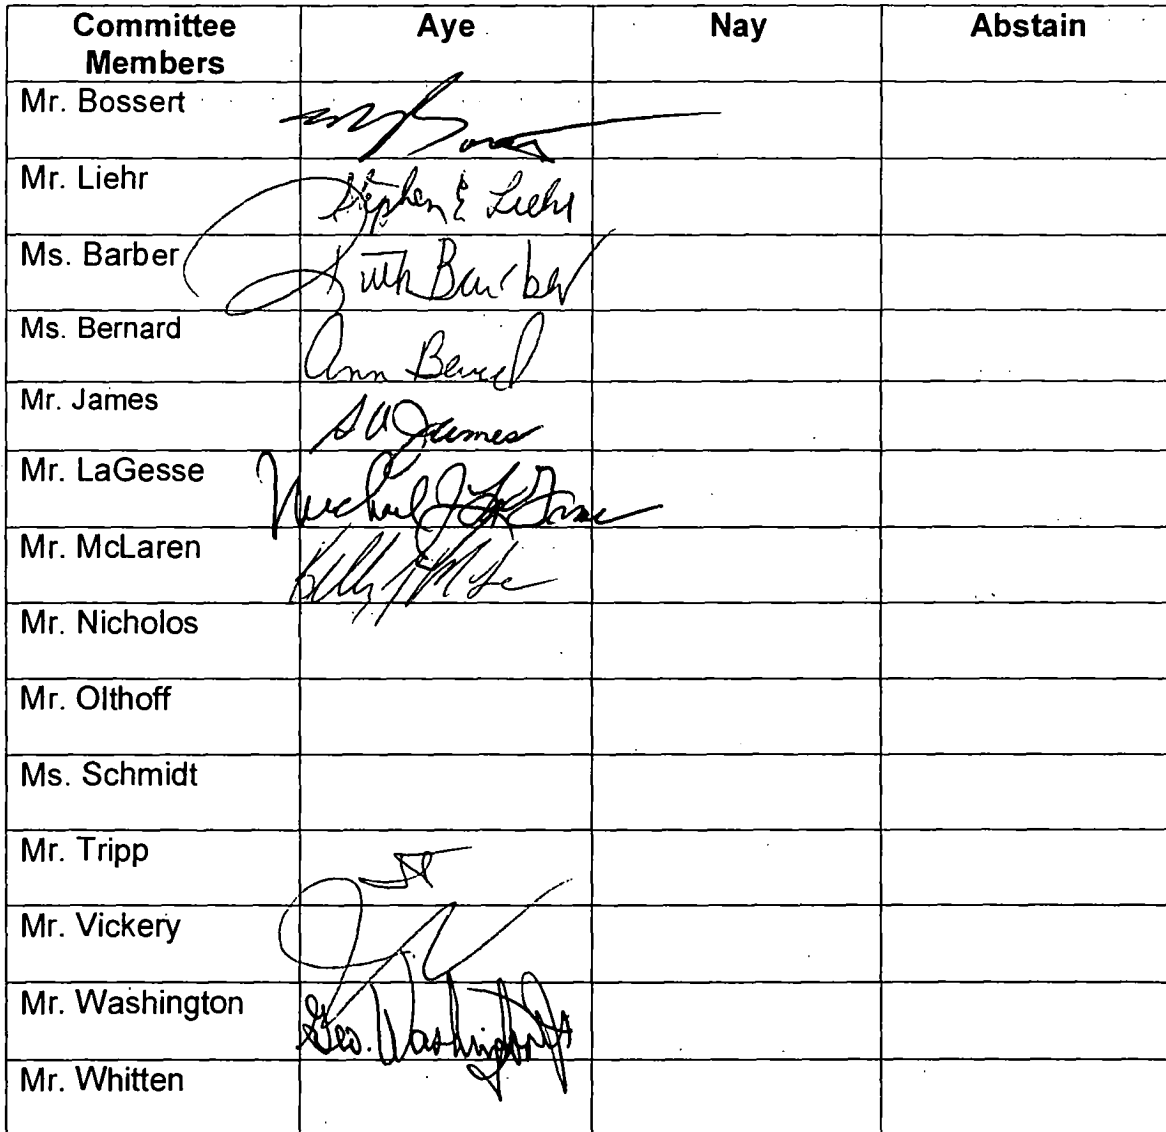 Committee Members Aye Nay Abstain
Mr. Bossert
Mr. Liehr Stephen E Liehr
Ms. Barber Ruth Barber
Ms. Bernard Ann Bernard
Mr. James
Mr. LaGesse Michael J LaGesse
Mr. McLaren
Mr. Nicholos
Mr. Olthoff
Ms. Schmidt
Mr. Tripp
Mr. Vickery
Mr. Washington Geo. Washington Jr
Mr. Whitten